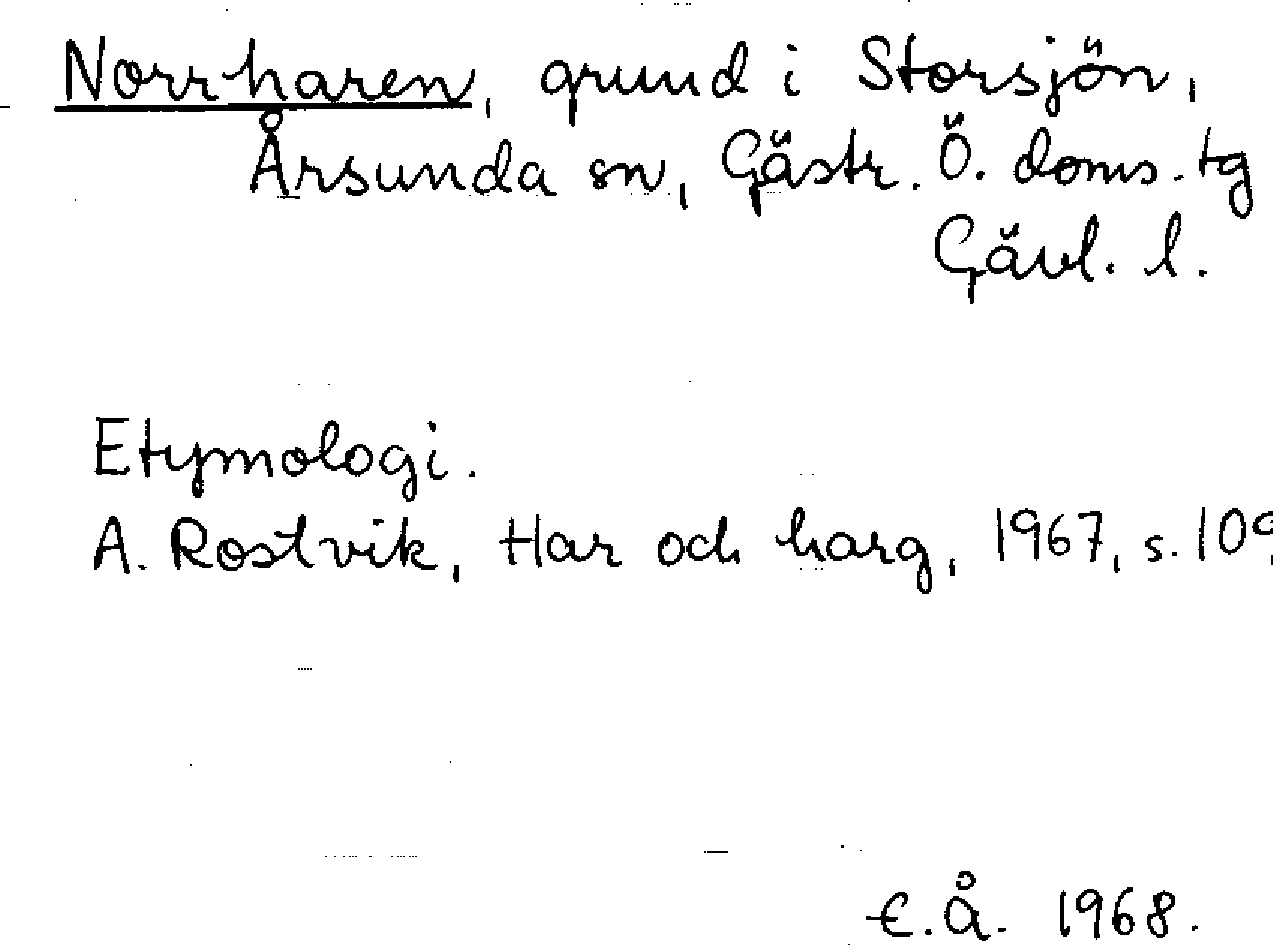 Norrharen, grund i Storsjön,
Årsunda sn, Gästr. Ö. doms. tg
Gävl. l.
Etymologi.
A. Rostvik, Har och harg, 1967, s. 109,
E.Å. 1968.